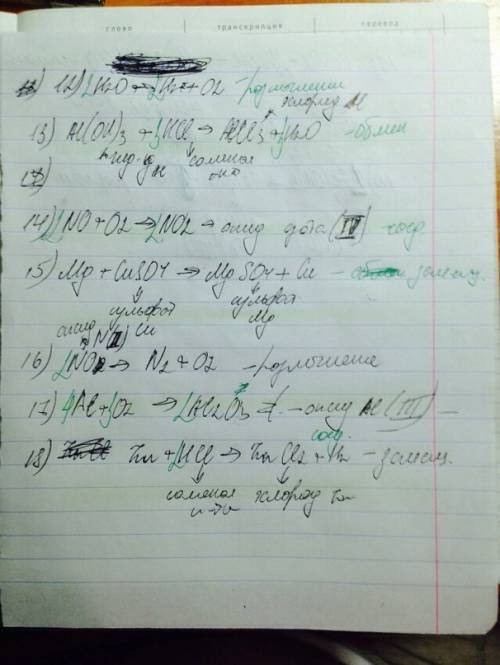 слово транскрипция перевод
12) 2H2O → 2H2 + O2 - разложение
хлорид Al
13) Al(OH)3 + 3HCl → AlCl3 + 3H2O - обмен
соляная
к-та
14) 2NO + O2 → 2NO2 - оксид азота (IV) соед.
15) Mg + CuSO4 → MgSO4 + Cu - замещ.
сульфат сульфат
Cu Mg
оксид N(II)
16) 2NO → N2 + O2 - разложение
17) 4Al + 3O2 → 2Al2O3 - оксид Al (III) -
соед.
18) Zn + 2HCl → ZnCl2 + H2 - замещ.
соляная хлорид Zn
к-та